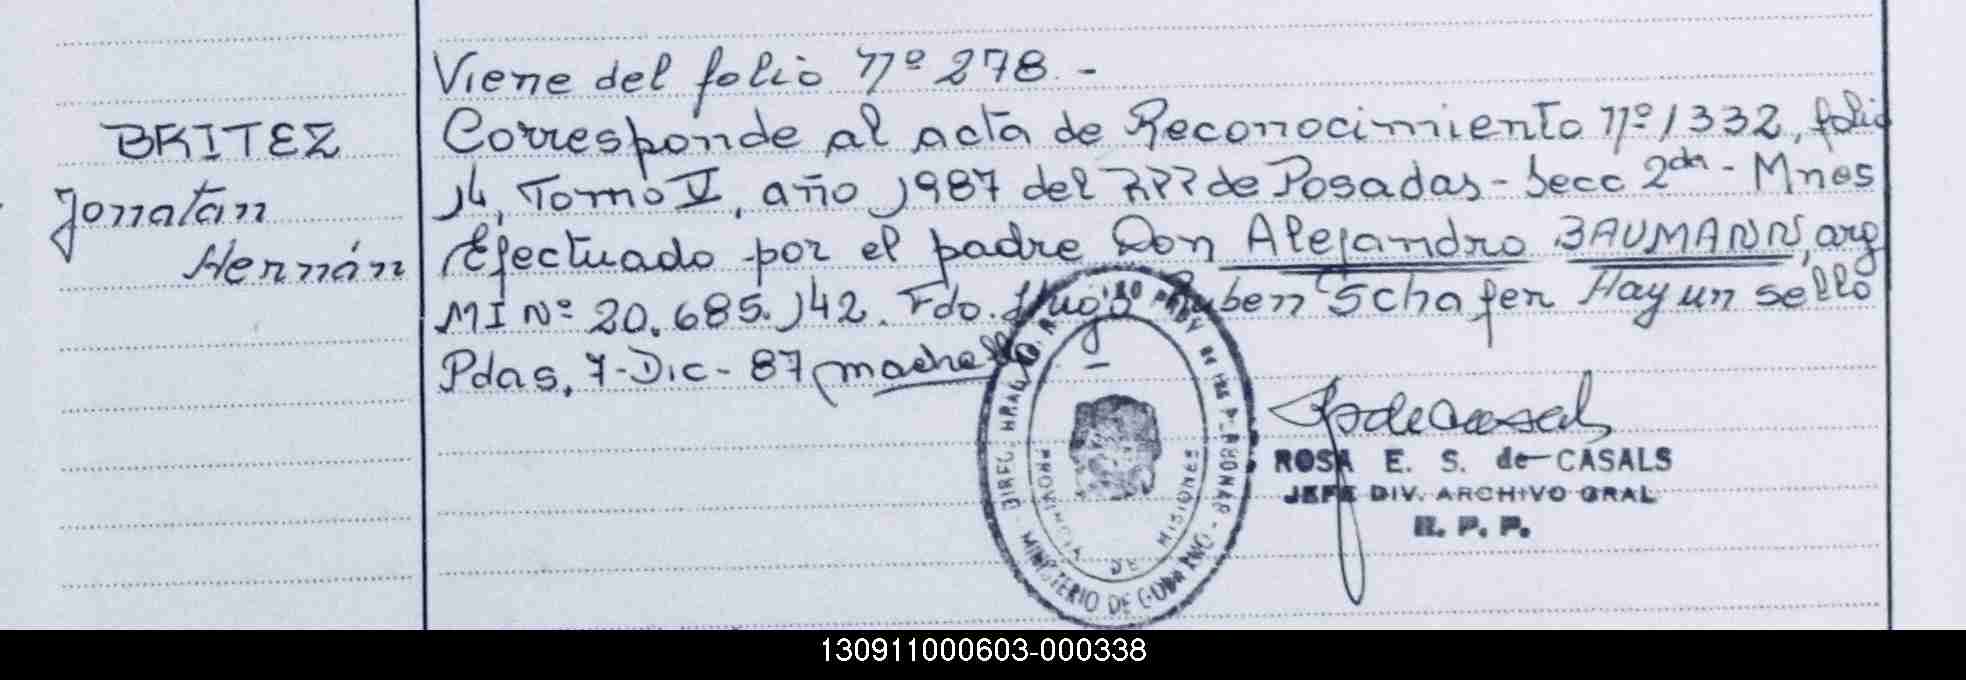 Viene del folio Nº 278.-
BRITEZ
Jonatan
Hernán
Corresponde al acta de Reconocimiento Nº 1332, folio
14, Tomo V, año 1987 del RPP de Posadas - Secc 2da - Mnes
Efectuado por el padre Don Alejandro BAUMANN, arg
MI Nº 20.685.142. Fdo. Hugo Ruben Schafer Hay un sello
Pdas, 7-Dic-87
MINISTERIO DE GOBIERNO
PROVINCIA DE MISIONES
ROSA E. S. de CASALS
JEFE DIV. ARCHIVO GRAL
R. P. P.
130911000603-000338